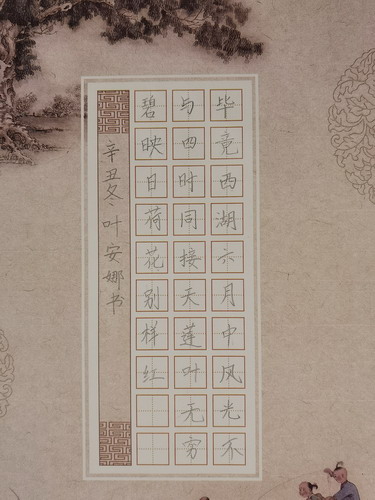 毕竟西湖六月中风光不
与四时同接天莲叶无穷
碧映日荷花别样红
辛丑冬叶安娜书